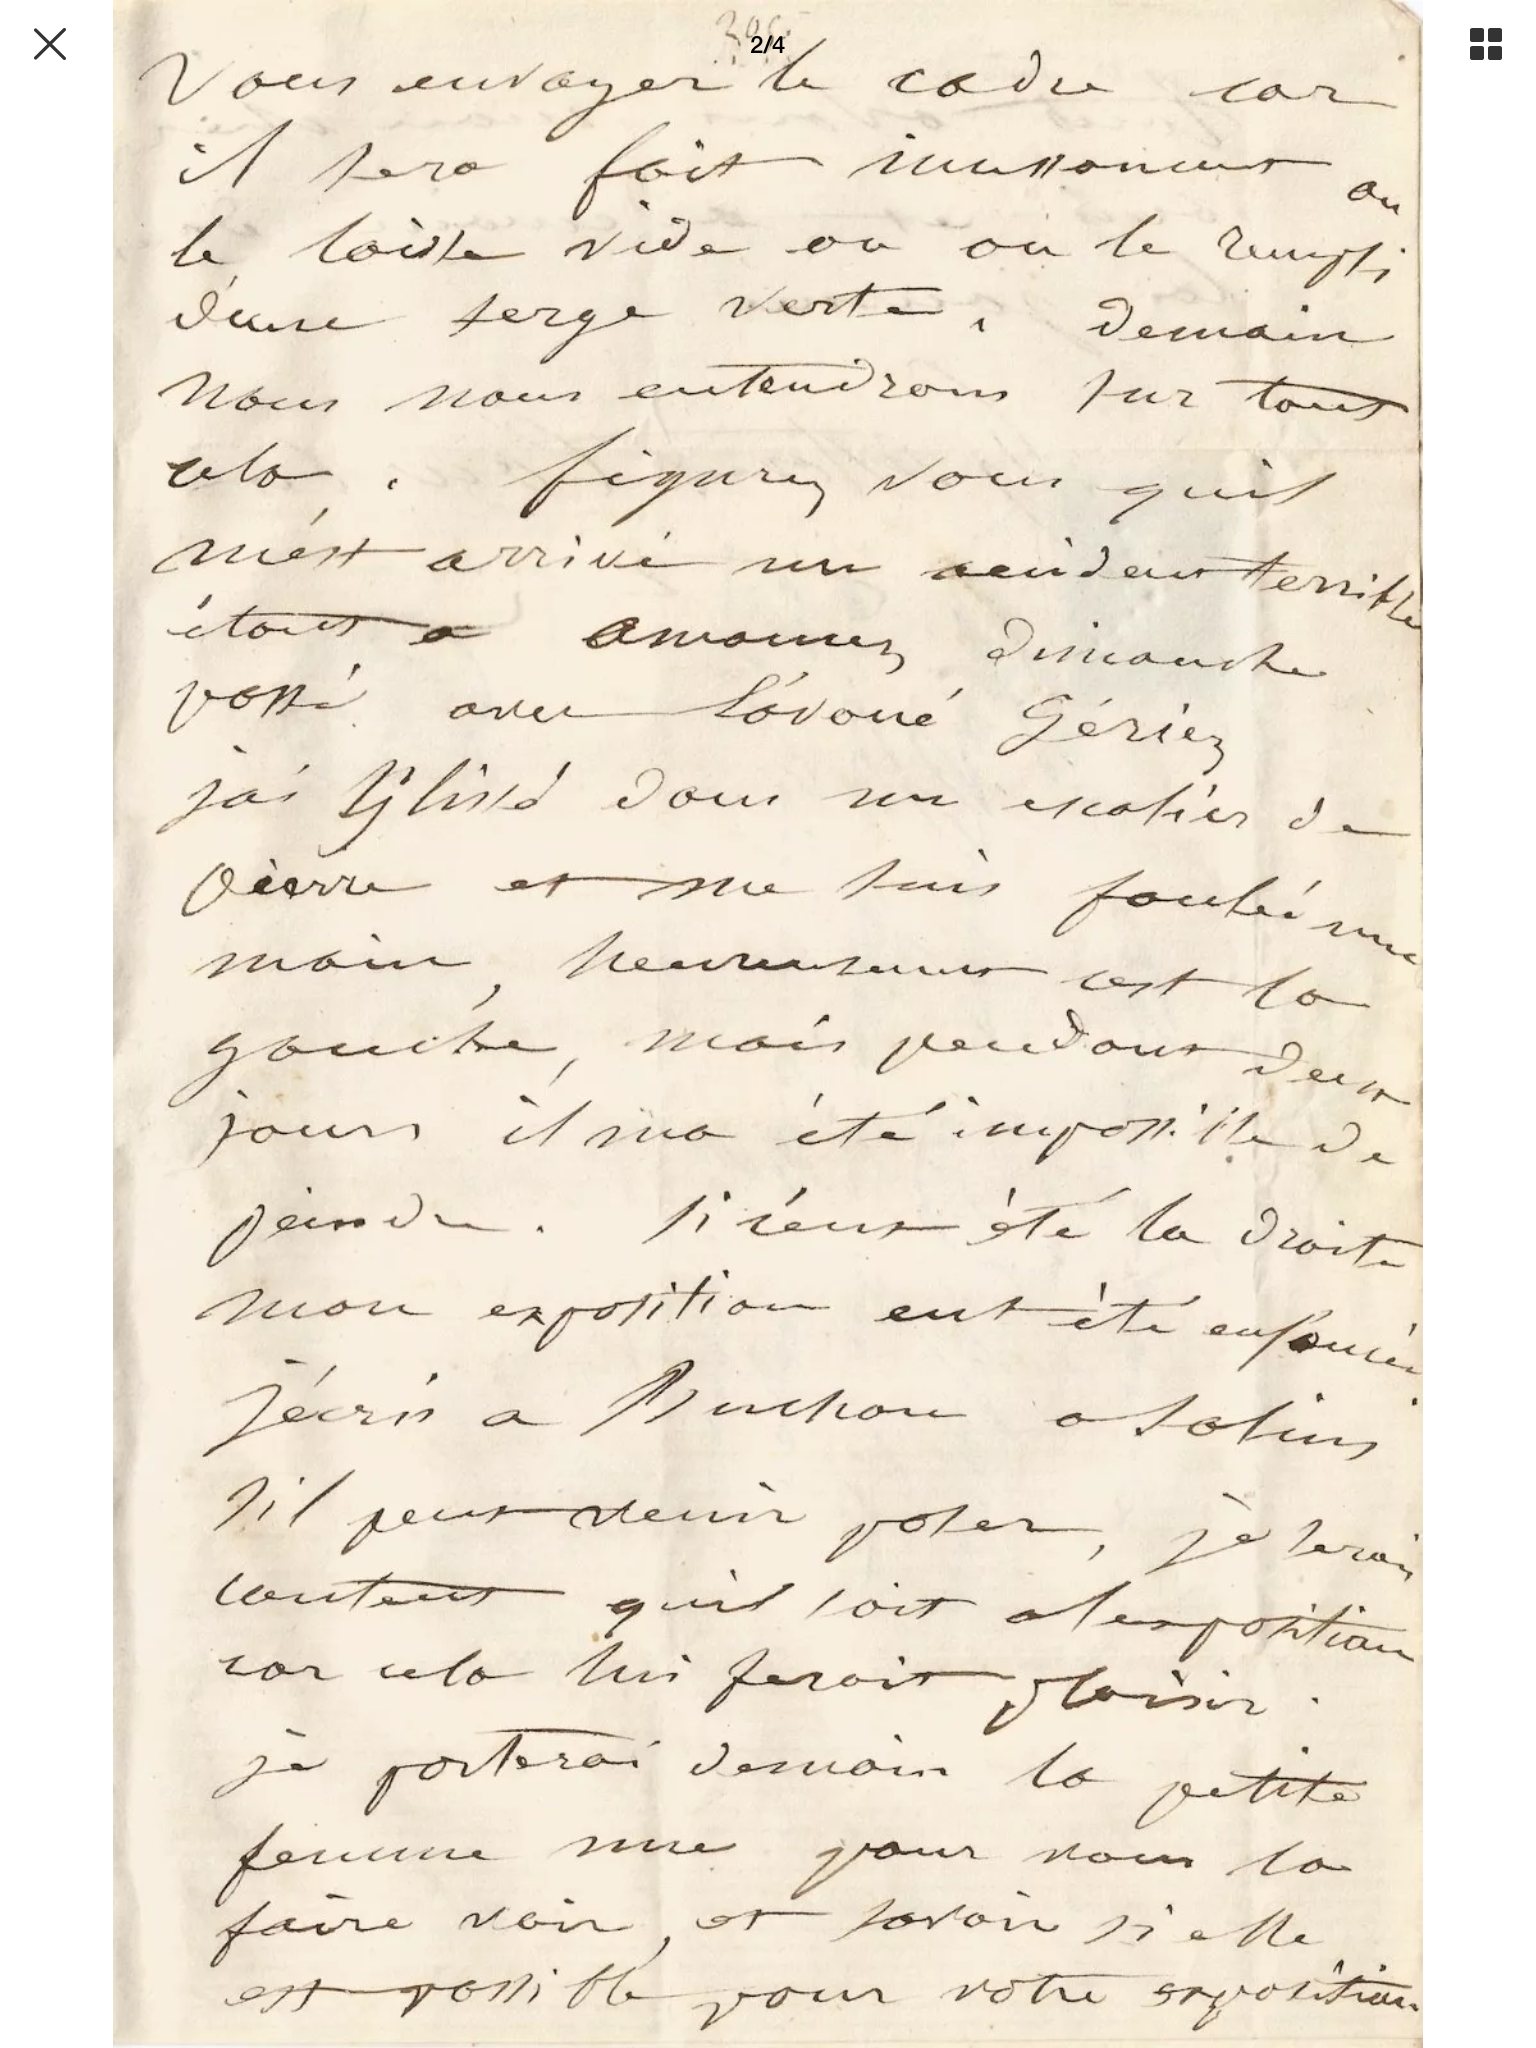 2/4
vous envoyer le cadre car
il sera fait incessament on
le laisse vide ou on le rempli
d'une serge verte. demain
nous nous entendrons sur tout
cela. figurez vous quil
m'est arrivé un accident terrible
étant a amancey dimanche
passé avec l'avoué Gériez
jai glissé dans un escalier de
pierre et me suis foulé une
main, heureusement cest la
gauche, mais pendant deux
jours il ma été impossible de
peindre. si c'eut été la droite
mon exposition eut été enfoncée.
j'écris a Buchon a Salins
sil peut venir poser, je serais
content quil soit a lexposition
car cela lui ferait plaisir.
je porterai demain la petite
femme nue pour vous la
faire voir, et savoir si elle
est possible pour votre exposition